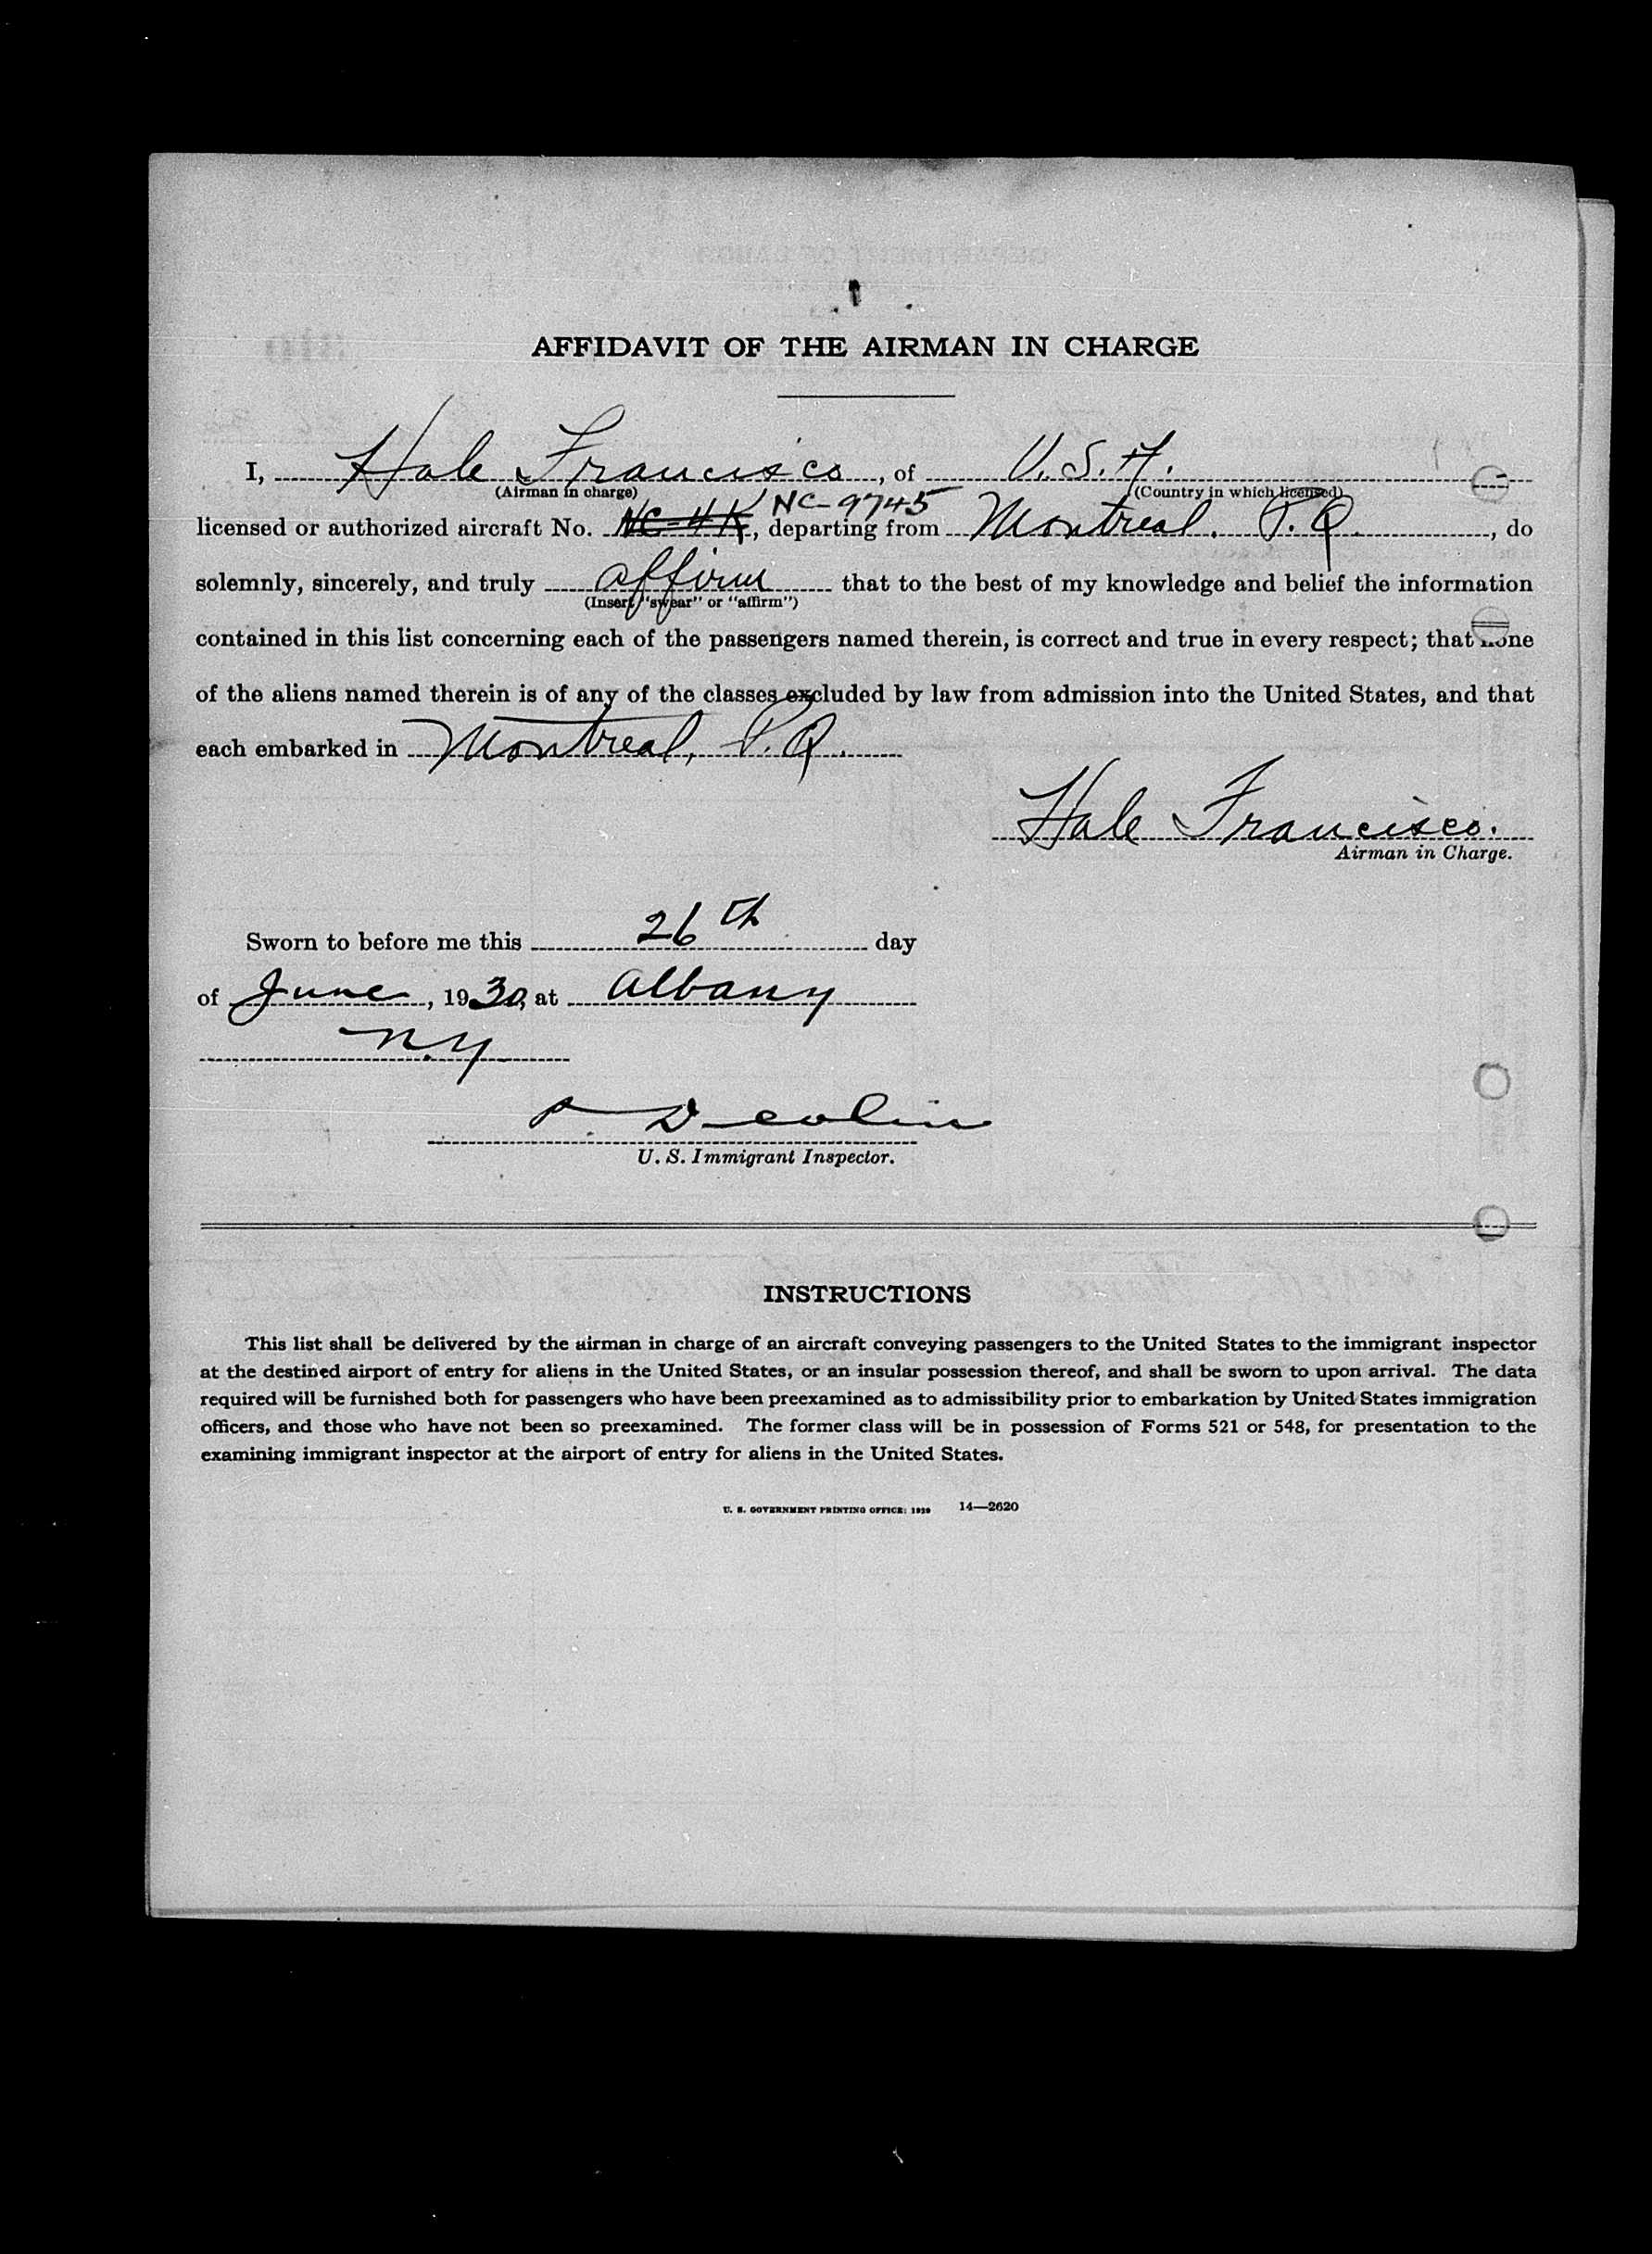 AFFIDAVIT OF THE AIRMAN IN CHARGE
I, Hale Francisco, of U.S.A.
(Airman in charge) (Country in which licensed)
NC-9745
licensed or authorized aircraft No. NC-4K, departing from Montreal. P.Q., do
solemnly, sincerely, and truly affirm that to the best of my knowledge and belief the information
(Insert "swear" or "affirm")
contained in this list concerning each of the passengers named therein, is correct and true in every respect; that none
of the aliens named therein is of any of the classes excluded by law from admission into the United States, and that
each embarked in Montreal, P.Q.
Hale Francisco.
Airman in Charge.
Sworn to before me this 26th day
of June, 1930, at Albany
N.Y
U. S. Immigrant Inspector.
INSTRUCTIONS
This list shall be delivered by the airman in charge of an aircraft conveying passengers to the United States to the immigrant inspector
at the destined airport of entry for aliens in the United States, or an insular possession thereof, and shall be sworn to upon arrival. The data
required will be furnished both for passengers who have been preexamined as to admissibility prior to embarkation by United States immigration
officers, and those who have not been so preexamined. The former class will be in possession of Forms 521 or 548, for presentation to the
examining immigrant inspector at the airport of entry for aliens in the United States.
U. S. GOVERNMENT PRINTING OFFICE: 1929 14—2620